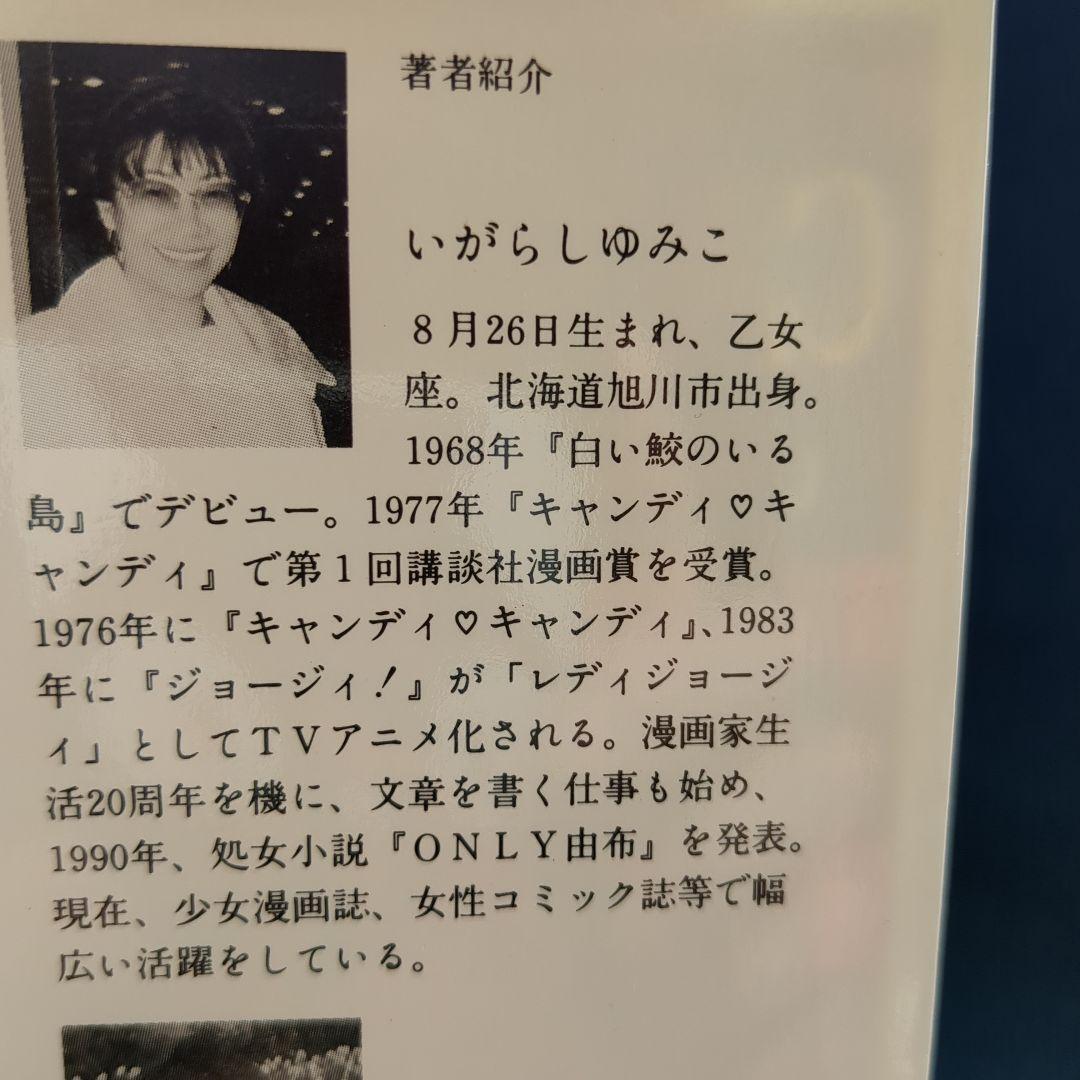 著者紹介
いがらしゆみこ
８月26日生まれ、乙女
座。北海道旭川市出身。
1968年『白い鮫のいる
島』でデビュー。1977年『キャンディ♡キ
ャンディ』で第１回講談社漫画賞を受賞。
1976年に『キャンディ♡キャンディ』、1983
年に『ジョージィ！』が「レディジョージ
ィ」としてＴＶアニメ化される。漫画家生
活20周年を機に、文章を書く仕事も始め、
1990年、処女小説『ＯＮＬＹ由布』を発表。
現在、少女漫画誌、女性コミック誌等で幅
広い活躍をしている。